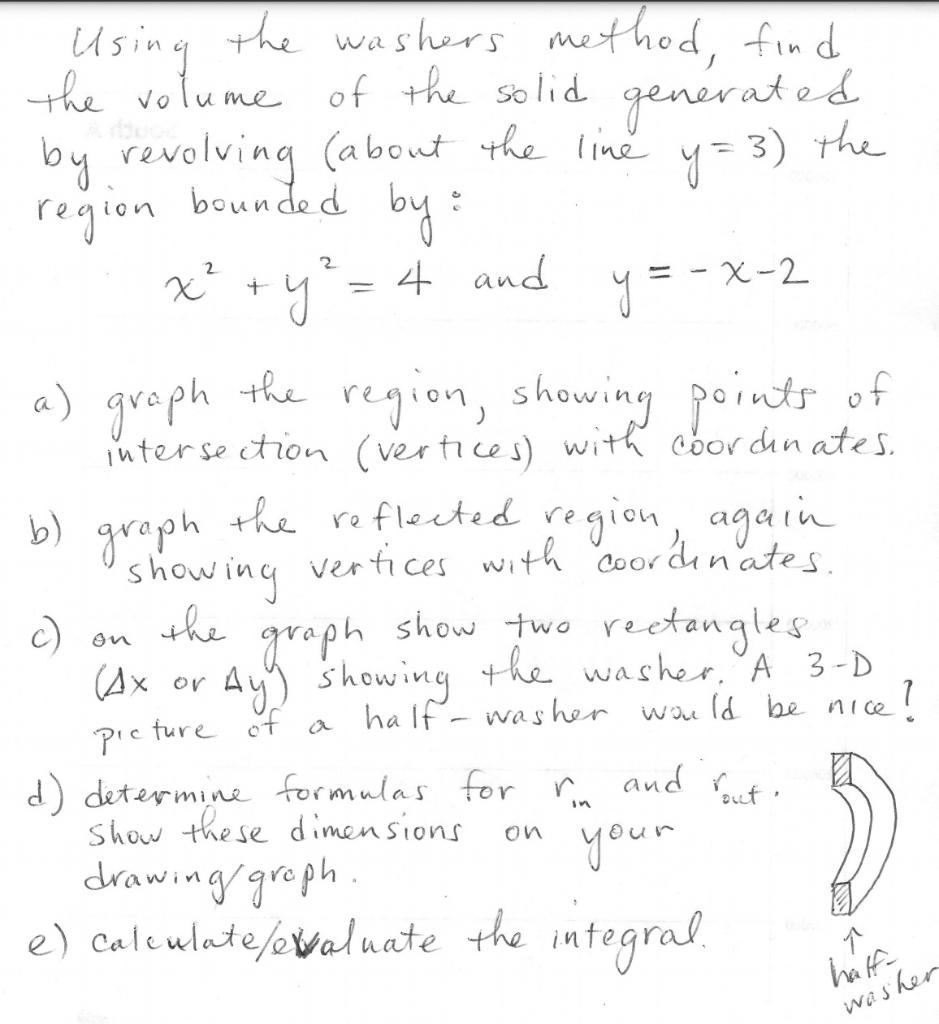 Using the washers method, find
the volume of the solid generated
by revolving (about the line y = 3) the
region bounded by:
x² + y² = 4 and y = -x-2
a) graph the region, showing points of
intersection (vertices) with coordinates.
b) graph the reflected region, again
showing vertices with coordinates.
c) on the graph show two rectangles
(Δx or Δy) showing the washer. A 3-D
picture of a half-washer would be nice!
d) determine formulas for r_in and r_out.
Show these dimensions on your
drawing/graph.
e) calculate/evaluate the integral.
↑
half-
washer